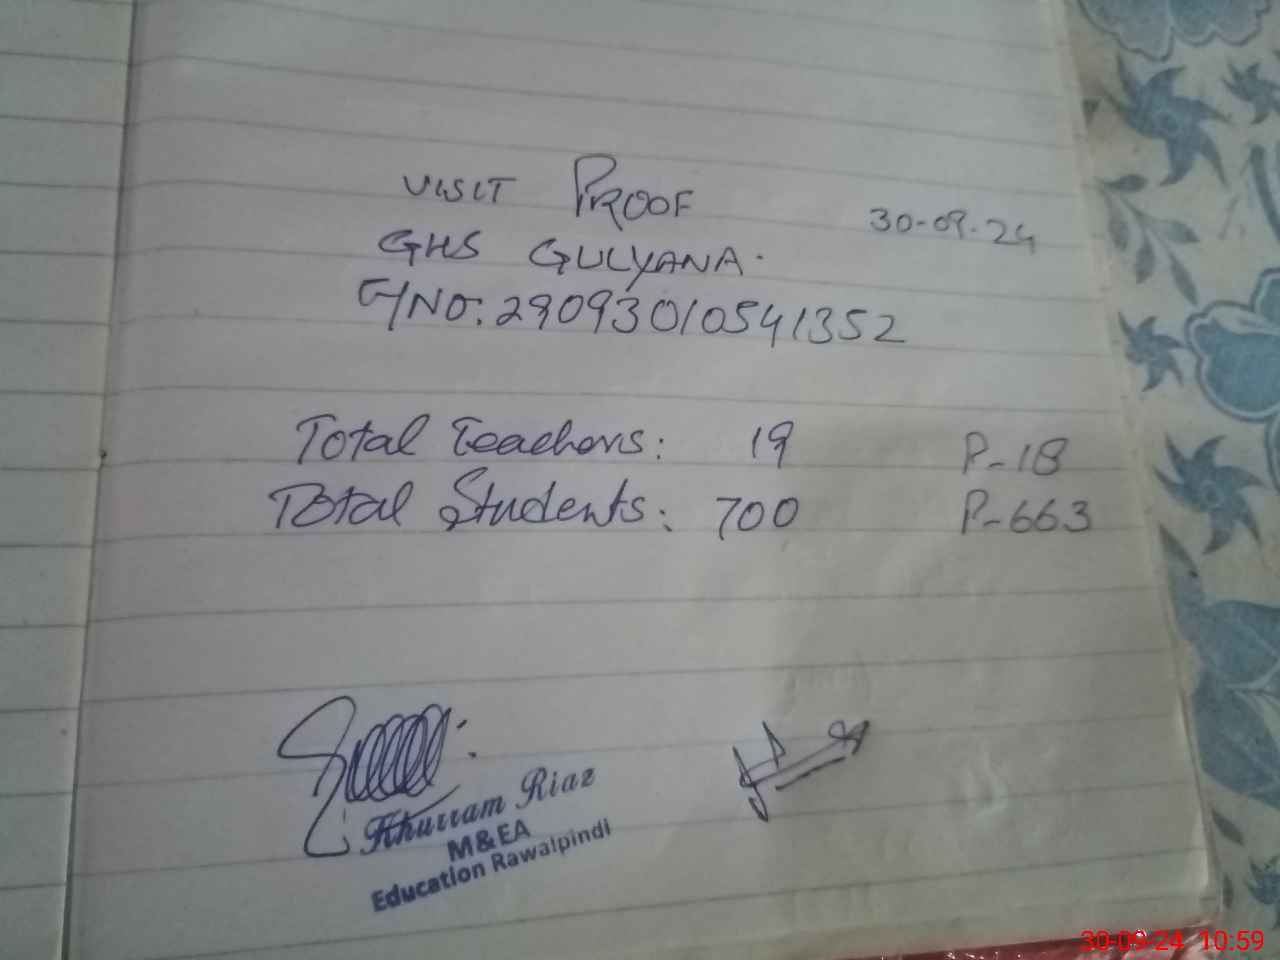 VISIT PROOF
30-09-24
GHS GULYANA.
G/NO: 29093010541352
Total Teachers: 19 P-18
Total Students: 700 P-663
Khurram Riaz
M&EA
Education Rawalpindi
30-09-24 10:59